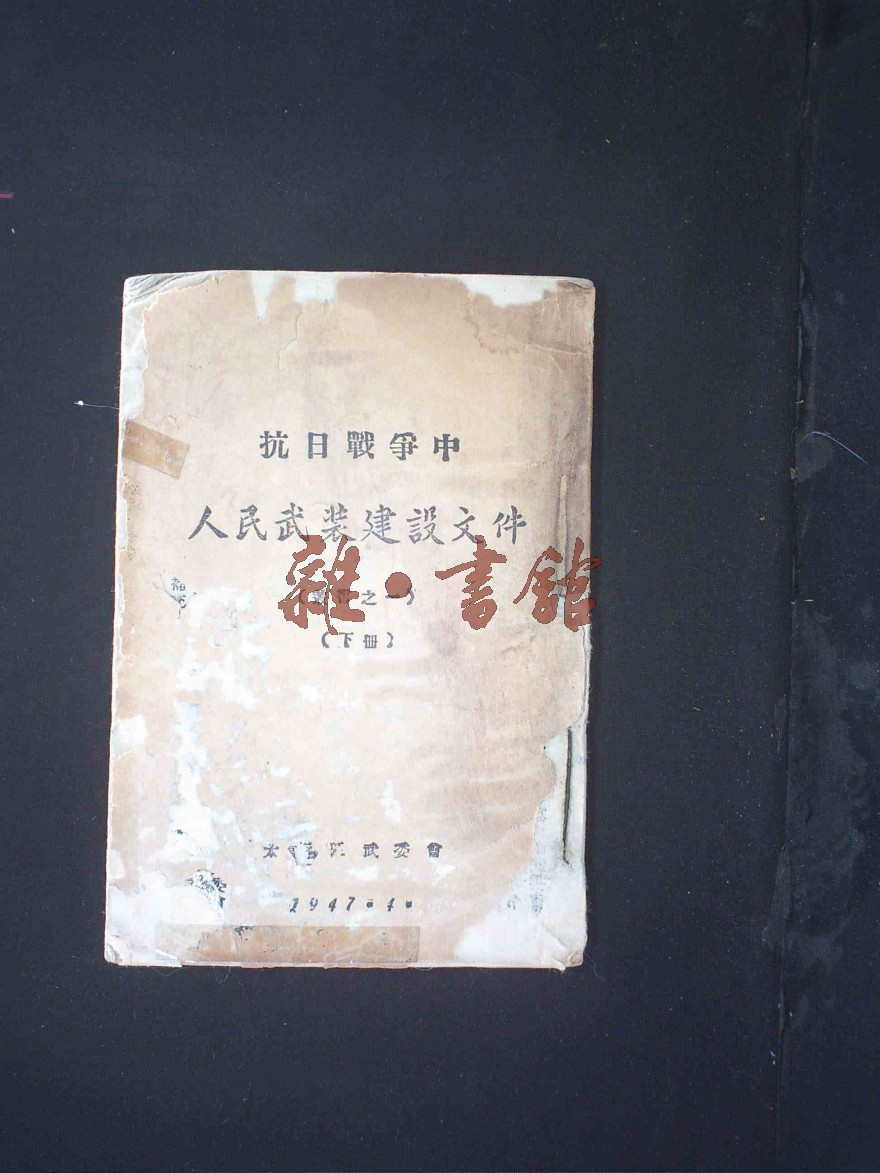 抗日戰爭中
人民武装建設文件
雜·書館
之一)
(下册)
太 武委會
1947·4·